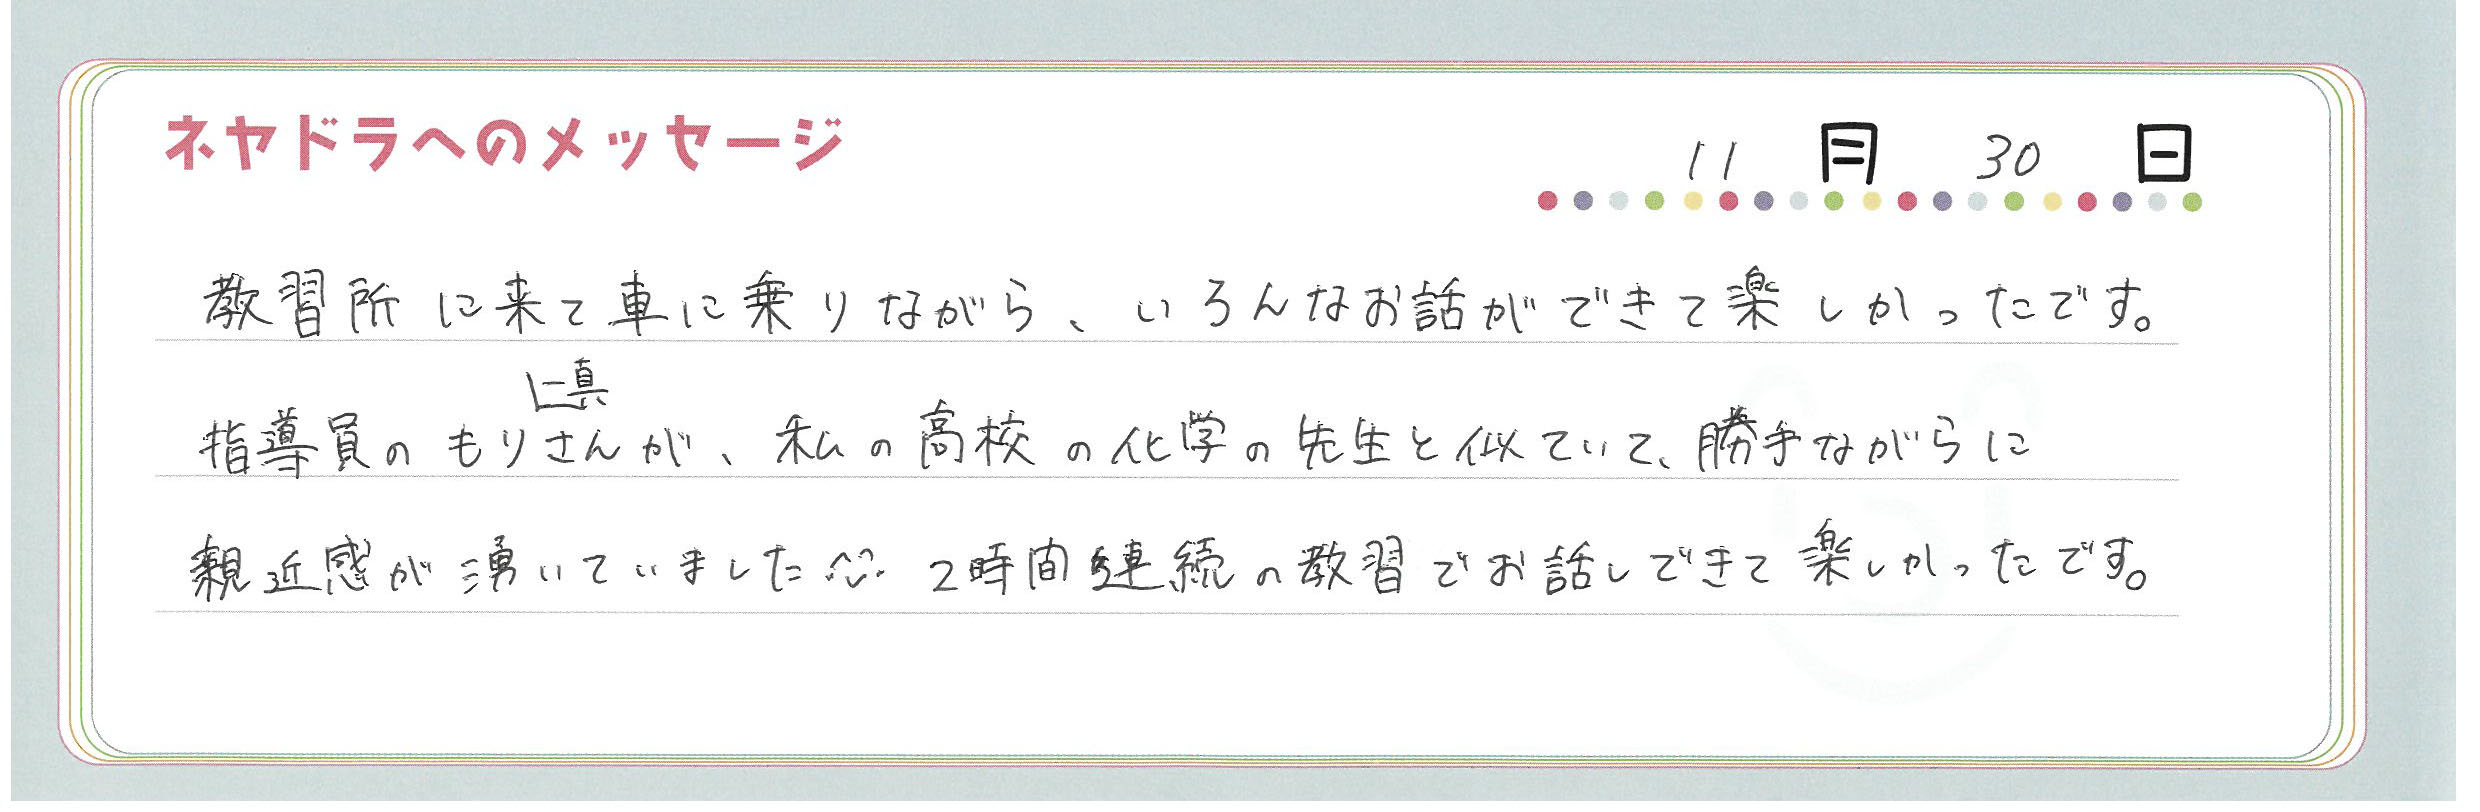 ネヤドラへのメッセージ
11月30日
教習所に来て車に乗りながら、いろんなお話ができて楽しかったです。
指導員のもり真さんが、私の高校の化学の先生と似ていて、勝手ながらに
親近感が湧いていました^^ 2時間連続の教習でお話しできて楽しかったです。